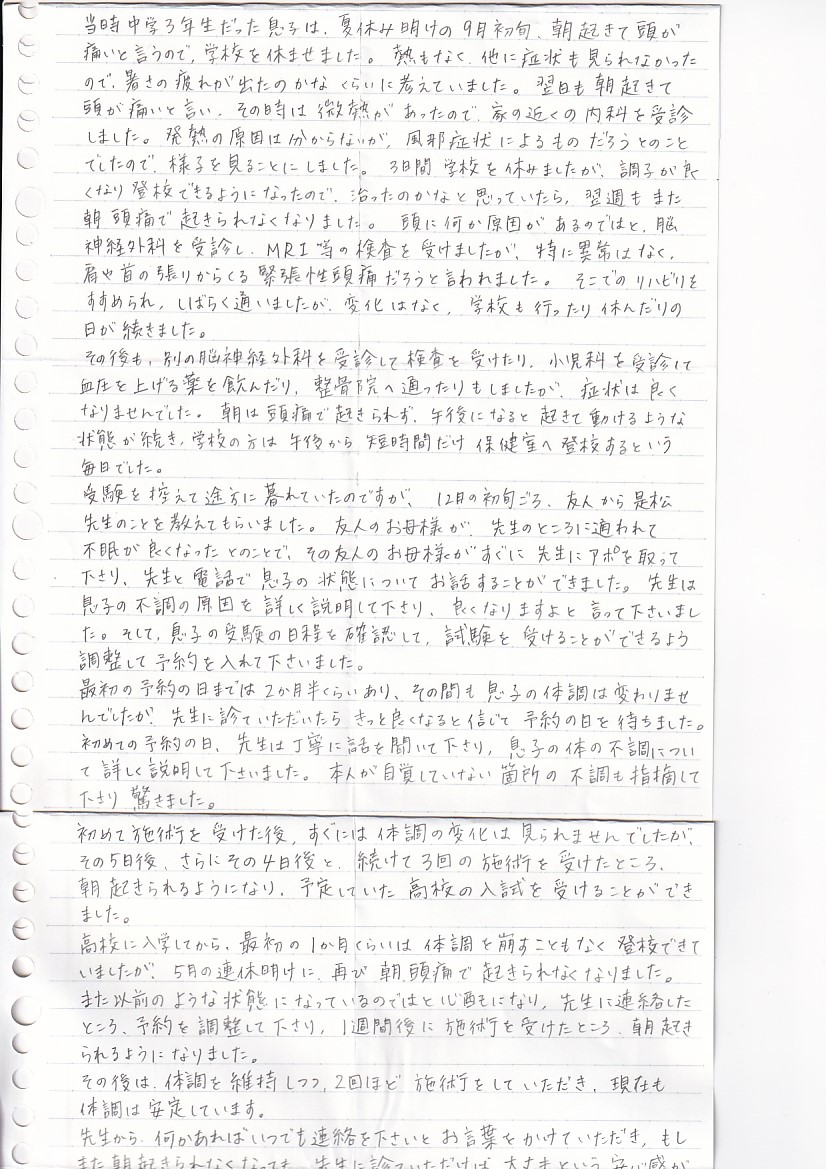 当時中学3年生だった息子は、夏休み明けの9月初旬、朝起きて頭が
痛いと言うので、学校を休ませました。熱もなく、他に症状も見られなかった
ので、暑さの疲れが出たのかな くらいに考えていました。翌日も朝起きて
頭が痛いと言い、その時は微熱があったので、家の近くの内科を受診
しました。発熱の原因は分からないが、風邪症状によるものだろうとのこと
でしたので、様子を見ることにしました。3日間学校を休みましたが、調子が良
くなり登校できるようになったので、治ったのかなと思っていたら、翌週もまた
朝頭痛で起きられなくなりました。頭に何か原因があるのではと、脳
神経外科を受診し、MRI等の検査を受けましたが、特に異常はなく、
肩や首の張りからくる緊張性頭痛だろうと言われました。そこでのリハビリを
すすめられ、しばらく通いましたが、変化はなく、学校も行ったり休んだりの
日が続きました。
その後も、別の脳神経外科を受診して検査を受けたり、小児科を受診して
血圧を上げる薬を飲んだり、整骨院へ通ったりもしましたが、症状は良く
なりませんでした。朝は頭痛で起きられず、午後になると起きて動けるような
状態が続き、学校の方は午後から短時間だけ保健室へ登校するという
毎日でした。
受験を控えて途方に暮れていたのですが、12月の初旬ごろ、友人から是松
先生のことを教えてもらいました。友人のお母様が、先生のところに通われて
不眠が良くなったとのことで、その友人のお母様がすぐに先生にアポを取って
下さり、先生と電話で息子の状態についてお話することができました。先生は
息子の不調の原因を詳しく説明して下さり、良くなりますよと言って下さいまし
た。そして、息子の受験の日程を確認して、試験を受けることができるよう
調整して予約を入れて下さいました。
最初の予約の日までは2か月半くらいあり、その間も息子の体調は変わりませ
んでしたが、先生に診ていただいたらきっと良くなると信じて予約の日を待ちました。
初めての予約の日、先生は丁寧に話を聞いて下さり、息子の体の不調につい
て詳しく説明して下さいました。本人が自覚していない箇所の不調も指摘して
下さり驚きました。
初めて施術を受けた後、すぐには体調の変化は見られませんでしたが、
その5日後、さらにその4日後と、続けて3回の施術を受けたところ、
朝起きられるようになり、予定していた高校の入試を受けることができ
ました。
高校に入学してから、最初の1か月くらいは体調を崩すこともなく登校できて
いましたが、5月の連休明けに、再び朝頭痛で起きられなくなりました。
また以前のような状態になっているのではと心配になり、先生に連絡した
ところ、予約を調整して下さり、1週間後に施術を受けたところ、朝起き
られるようになりました。
その後は、体調を維持しつつ、2回ほど施術をしていただき、現在も
体調は安定しています。
先生から、何かあればいつでも連絡を下さいとお言葉をかけていただき、もし
また朝起きられなくなっても、先生に診ていただければ大丈夫という安心感が